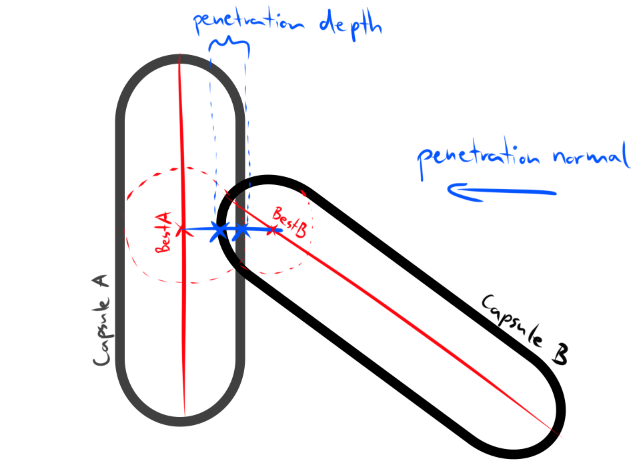 penetration depth
penetration normal
Best A
Best B
Capsule A
Capsule B